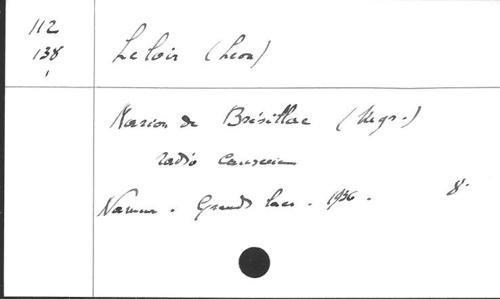 112
138
Leloir (Leon)
Marion de Brésillac (Mgr.)
radio causerie
Namur. Grands lacs. 1936. 8.